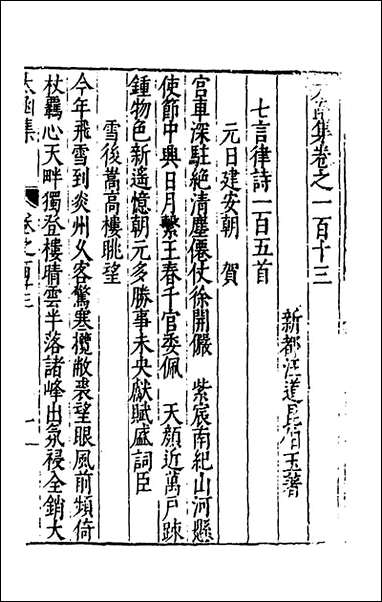 太函集卷之一百十三
新都汪道昆伯玉著
七言律詩一百五首
元日建安朝　賀
宮車深駐絶清塵僊仗徐開儼　紫宸南紀山河懸
使節中興日月繫王春千官委佩　天顔近萬戸踈
鍾物色新遥憶朝元多勝事未央獻賦盛詞臣
雪後嵩高樓眺望
今年飛雪到炎州久客驚寒攬敝裘望眼風前頻倚
杖羈心天畔獨登樓晴雲半落諸峰出氛祲全銷大
太函集
卷之百十三
一